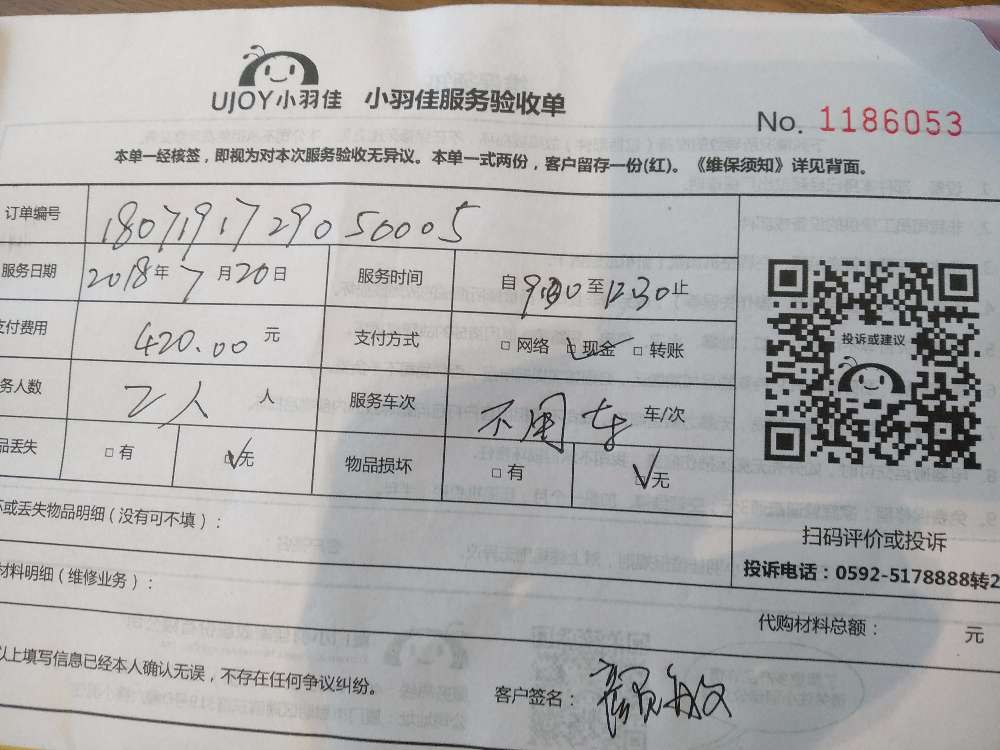 UJOY小羽佳 小羽佳服务验收单
No. 1186053
本单一经核签，即视为对本次服务验收无异议。本单一式两份，客户留存一份(红)。《维保须知》详见背面。
订单编号 1807191729050005
服务日期 2018年7月20日 服务时间 自9:30至12:30止
支付费用 420.00 元 支付方式 □网络 ☑现金 □转账
务人数 2人 人 服务车次 不用车 车/次
品丢失 □有 ☑无 物品损坏 □有 ☑无
投诉或建议
扫码评价或投诉
投诉电话：0592-5178888转2
坏或丢失物品明细（没有可不填）：
材料明细（维修业务）：
代购材料总额： 元
以上填写信息已经本人确认无误，不存在任何争议纠纷。
客户签名：